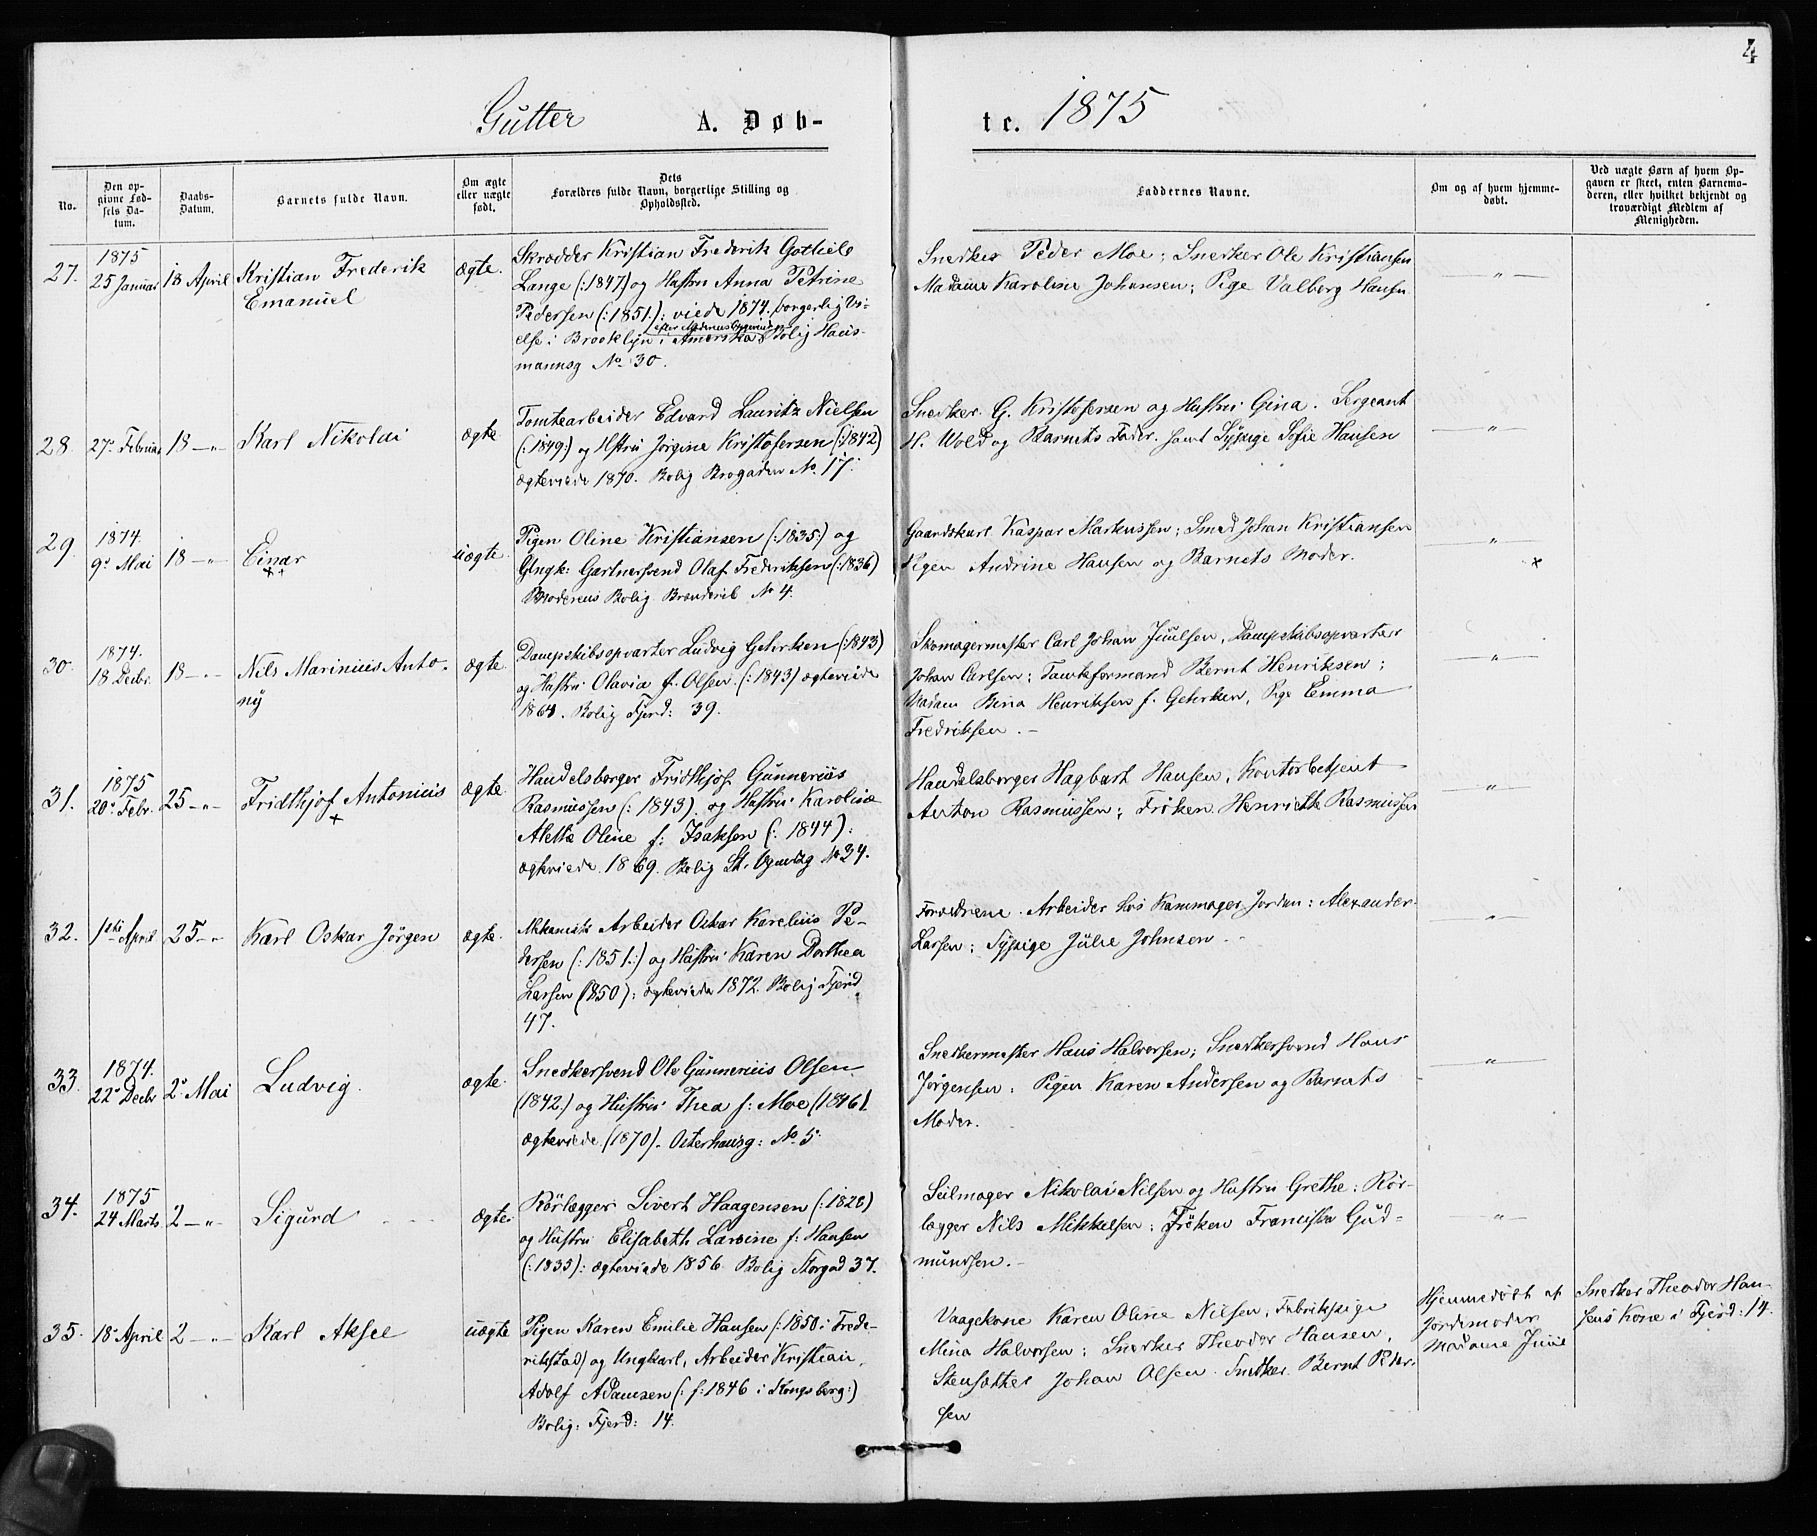 4
Gutter A. Døb-
te. 1875
No.
Den op-
givne Fød-
sels Da-
tum.
Daabs-
Datum.
Barnets fulde Navn.
Om ægte
eller uægte
født.
Dets
Forældres fulde Navn, borgerlige Stilling og
Opholdssted.
Faddernes Navne.
Om og af hvem hjemme-
døbt.
Ved uægte Børn af hvem Op-
gaven er skeet, enten Barnemo-
deren, eller hvilket bekjendt og
troværdigt Medlem af
Menigheden.
27.
1875
25 Januar
18 April
Kristian Frederik
Emanuel
ægte.
Skrædder Kristian Frederik Gottlieb
Lange (:1847) og Hustru Anna Petrine
Pedersen (:1851.): viede 1874. borgerlig Vi-
else i Brooklyn i Amerika Bolig Haus-
efter Moderens
mannsg No. 30.
Snedker Peder Moe; Snedker Ole Kristiansen
Madame Karoline Johansen; Pige Valborg Hansen
— „ —
28.
27. Februar
18 — „
Karl Nikolai
ægte
Tomtearbeider Edvard Lauritz Nielsen
(:1849:) og Hstru Jørgine Kristofersen (:1842)
ægteviede 1870. Bolig Brogaden No. 17.
Snedker G. Kristofersen og Hustru Gina. Sergeant
H. Wold og Barnets Fader. samt Sypige Sofie Hansen
— „ —
29.
1874.
9. Mai
18 — „
Einar
uægte.
Pigen Oline Kristiansen (:1835:) og
Ungk: Gartnersvend Olaf Frederiksen (:1836)
Moderens Bolig No 4.
Gaardskarl Kaspar Markussen; Smed Johan Kristiansen
Pigen Andrine Hansen og Barnets Moder.
— „ —
×
30.
1874.
18 Decbr.
18 — „
Nils Marinius Anto-
ny
ægte.
Dampskibsopvarter Ludvig Gehrken (:1843)
og Hustru Olavia f. Olsen (:1843) ægteviede
Bolig Fjerd: 39.
Skomagermester Carl Johan Juulsen, Dampskibsopvarter
Johan Carlsen; Formand Bernt Henriksen;
Madam Bina Henriksen f. Gehrken, Pige Emma
Fredriksen. —
— „ —
31.
1875
20. Febr.
25 — „
Fridthjof Antonius
×
ægte.
Handelsborger Fridthjof Gunnerius
Rasmussen (:1843). og Hustru Karoline
Alette Oline f: Isaksen (:1844):
ægteviede 1869. Bolig St. No 34.
Handelsborger Hagbart Hansen, Kontorbetjent
Anton Rasmussen; Frøken Henriette Rasmussen
— „ —
32.
1ste April
25 — „
Karl Oskar Jørgen
ægte.
Mekanisk Arbeider Oskar Karelius Pe-
dersen (:1851.:) og Hustru Karen Dorthea
Larsen (1850): ægteviede 1872. Bolig Fjerd.
47.
Forældrene. Arbeider hos Kammager Jordan: Alexander
Larsen; Sypige Julie Johnsen. —
— „ —
33.
1874.
22. Decbr
2. Mai
Ludvig.
ægte.
Snedkersvend Ole Gunnerius Olsen
(1842.) og Hustru Thea f: Moe (1846).
ægteviede (1870). Osterhausg: No. 5.
Snedkermester Hans Halvorsen; Snedkersvend Hans
Jørgensen; Pigen Karen Andersen og Barnets
Moder.
— „ —
34.
1875
24 Marts
2 — „
Sigurd
ægte.
Rørlægger Sivert Haagensen (:1828)
og Hustru Elisabeth Lavine f: Hansen
(:1833): ægteviede 1856. Bolig Storgad 37.
Seilmager Nikolai Nilsen og Hustru Grethe: Rør-
lægger Nils Mikkelsen; Frøken Franciska Gud-
mundsen. —
— „ —
35.
18. April
2 — „
Karl Aksel
uægte
Pigen Karen Emilie Hansen (:1850 i Frede-
rikstad) og Ungkarl, Arbeider Kristian
Adolf Adamsen (: f: 1846 i Kongsberg:)
Bolig: Fjerd: 14.
Vaagekone Karen Oline Nilsen; Fabrikpige
Mina Halvorsen; Snedker Theodor Hansen,
Stensætter Johan Olsen. Snedker Bernt Peder-
sen
Hjemmedøbt af
Jordemoder
Madame Juue
Snedker Theodor Han-
sens Kone i Fjerd: 14.